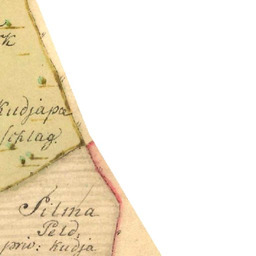 Kudjapä
Schlag.
Silma
Feld.
priv: Kudja